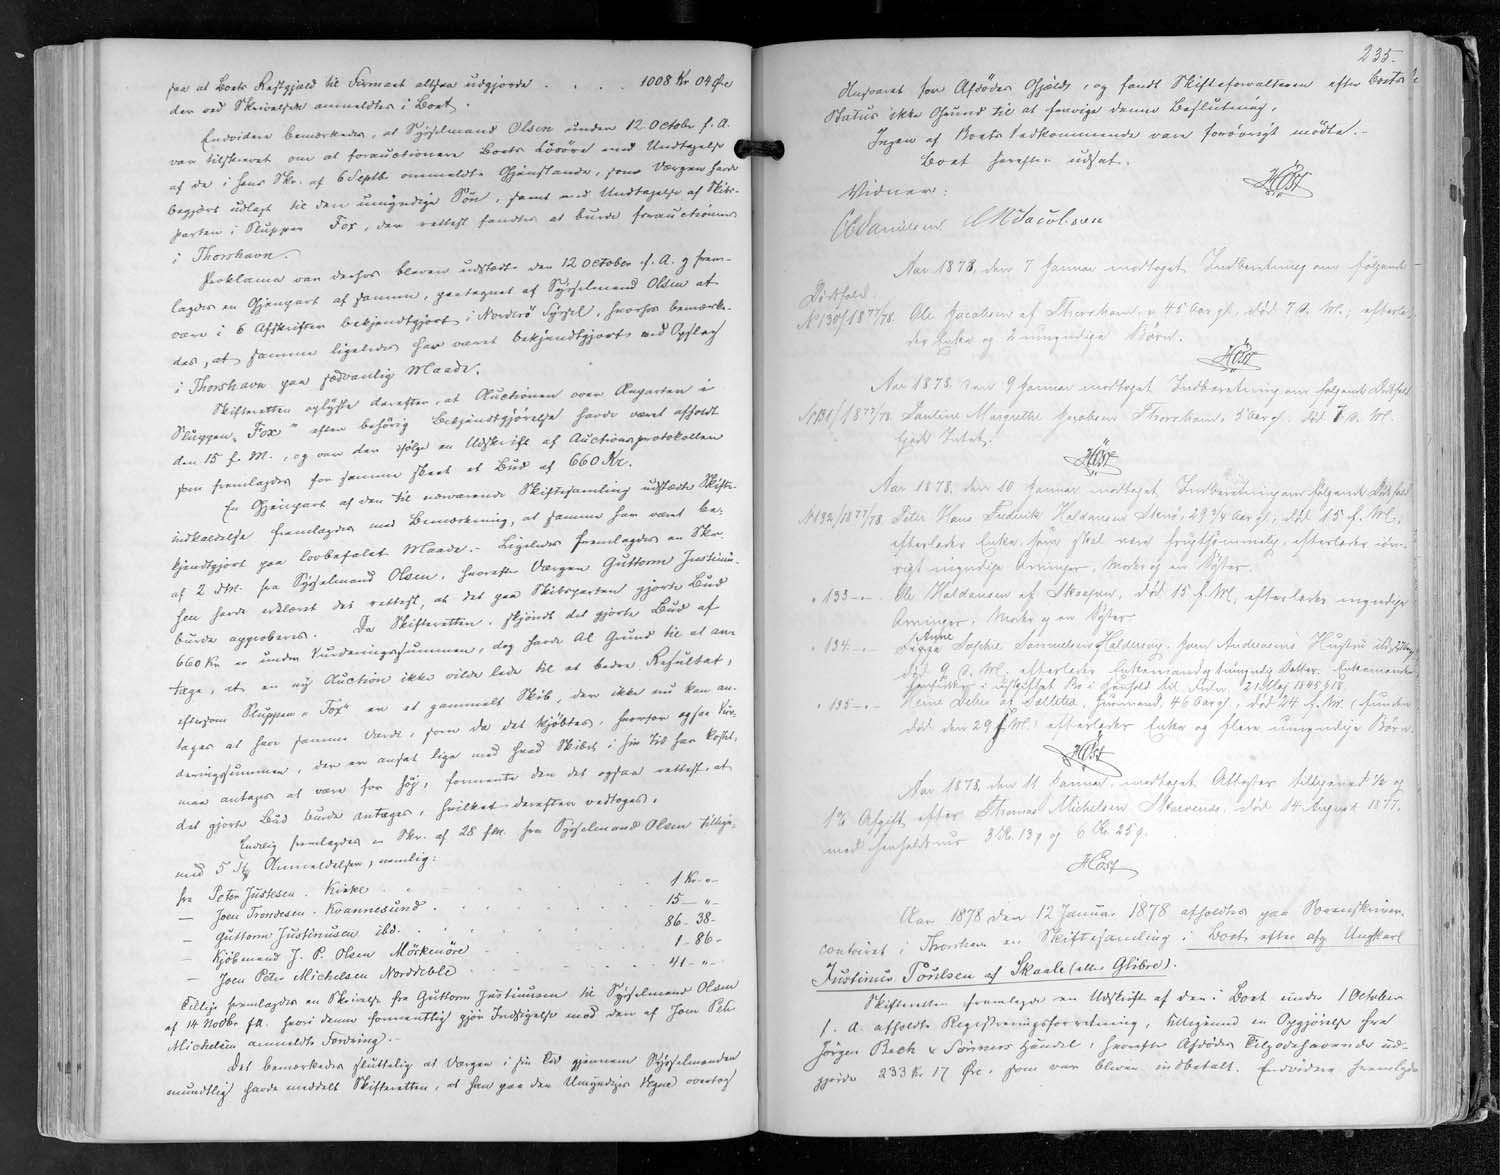 saa at Boets Restgjæld til Firmaet altsaa udgjorde . . . . 1008 Kr 04 Øre
der ved Skrivelsen anmeldtes i Boet.
Endvidere bemærkedes, at Sysselmand Olsen under 12 October f. A.
var tilskrevet om at forauctionere Boets Løsøre med Undtagelse
af de i hans Skr. af 6 Septb. ommeldte Gjenstande, som Værgen havde
begjært udlagt til den umyndige Søn, samt med Undtagelse af Skibs-
parten i Sluppen Fox, der rettest fandtes at burde forauctioneres
i Thorshavn.
Proklama var derhos bleven udstædt den 12 October f. A. og frem-
lagdes en Gjenpart af samme, paategnet af Sysselmand Olsen at
være i 6 Afskrifter bekjendtgjort i Norderø Syssel, hvorhos bemærke-
des, at samme ligeledes har været bekjendtgjort ved Opslag
i Thorshavn paa sædvanlig Maade.
Skifteretten oplyste derefter, at Auctionen over Anparten i
Sluppen "Fox" efter behørig Bekjendtgjørelse havde været afholdt
den 15 f. M., og var der ifølge en Udskrift af Auctionsprotokollen
som fremlagdes for samme skeet et Bud af 660 Kr.
En Gjenpart af den til nærværende Skiftesamling udstædte Skifte-
indkaldelse fremlagdes med Bemærkning, at samme har været be-
kjendtgjort paa lovbefalet Maade. - Ligeledes fremlagdes en Skr.
af 2 dM. fra Sysselmand Olsen, hvorefter Værgen Guttorm Justinu-
sen havde erklæret det rettest, at det paa Skibsparten gjorte Bud
burde approberes. Da Skifteretten, skjøndt det gjorte Bud af
660 Kr. er under Vurderingssummen, dog havde al Grund til at an-
tage, at en ny Auction ikke vilde lede til et bedre Resultat,
eftersom Sluppen "Fox" er et gammelt Skib, der ikke nu kan an-
tages at have samme Værdi, som da det kjøbtes, hvorfor ogsaa Vur-
deringssummen, der er ansat lige med hvad Skibet i sin Tid har kostet,
maa antages at være for høj, formente den det ogsaa rettest, at
det gjorte Bud burde antages, hvilket derefter vedtoges.
Endelig fremlagdes en Skr. af 28 f.M. fra Sysselmand Olsen tillige-
med 5 Anmeldelser, nemlig:
fra Peter Justesen. Kirke . . . 1 Kr - " -
— Joen Trondesen. Kvannesund . . . 15 - " -
— Guttorm Justinusen ibd. . . . 86 - 38 -
— Kjøbmand J. P. Olsen Mörkenöre . . . 1 - 86 -
— Joen Peter Michelsen Norddeble . . . 41 - " -
Tillige fremlagdes en Skrivelse fra Guttorm Justinusen til Sysselmand Olsen
af 14 Novbr. f.A. hvori denne formentlig gjør Indsigelse mod den af Joen Peter
Michelsen anmeldte Fordring. -
Det bemærkedes sluttelig at Værgen i sin Tid gjennem Sysselmanden
mundtlig havde meddelt Skifteretten, at han paa den Umyndiges Vegne overtog
235.
Ansvaret for Afdødes Gjæld, og fandt Skifteforvalteren efter Boets
Status ikke Grund til at fravige denne Beslutning.
Ingen af Boets Vedkommende vare forøvrigt mødte. -
Boet herefter udsat.
Høst
Vidner:
Danielsen M Jacobsen
Aar 1878, den 7 Januar modtaget Indberetning om følgende
Dødsfald.
No 130/1877/78. Ole Jacobsen af Thorshavn, 45 Aar gl., død 7 d. M.; efterla-
der Enke og 2 umyndige Børn.
Høst
Aar 1878, den 9 Januar modtaget Indberetning om følgende Dødsfald
No 131/1877/78. Pauline Margrethe Jacobsen Thorshavn, 5 Aar gl. død d. M.
Ejede Intet.
Høst
Aar 1878, den 10 Januar modtaget Indberetning om følgende Dødsfald
No 132/1877/78. Peter Hans Frederik Haldansen Sterö, 29 3/4 Aar gl., død 15 f. M.,
efterlader Enke, som skal være frugtsommelig, efterlader iøv-
rigt myndige Arvinger, Moder og en Søster.
" 133 - " - Ole Haldansen af Skopen, død 15 f. M., efterlader myndige
Arvinger, Moder og en Søster.
" 134 - " - Anne Sophie Samuelsen Haldersvig, Joen Andreasens Hustru
død 9 d. M., efterlader Enkemand og umyndig Datter. Enkemanden
hensidder i uskiftet Bo i Henhold til Frdn. 21 Maj 1845 § 18.
" 135 - " - 46 Aar gl., død 24 f. M. (funden
død den 29 f. M.) efterlader Enke og flere umyndige Børn.
Høst
Aar 1878, den 11 Januar, modtaget Attester tilligemed ½ og
1% Afgift efter Thomas Michelsen død 14 August 1877.
med henholdsvis 3 Kr. 13 ø og 6 Kr. 25 ø.
Høst
Aar 1878 den 12 Januar 1878 afholdtes paa Sorenskriver-
contoiret i Thorshavn en Skiftesamling i Boet efter afg. Ungkarl
Justinus Poulsen af Skaale (eller Glibre).
Skifteretten fremlagde en Udskrift af den i Boet under 1 October
f. A. afholdte Registreringsforretning, tilligemed en Opgjørelse fra
Jörgen Bech & Sönners Handel, hvorefter Afdødes Tilgodehavende ud-
gjorde 233 Kr 17 Øre, som var bleven indbetalt. Endvidere fremlagdes